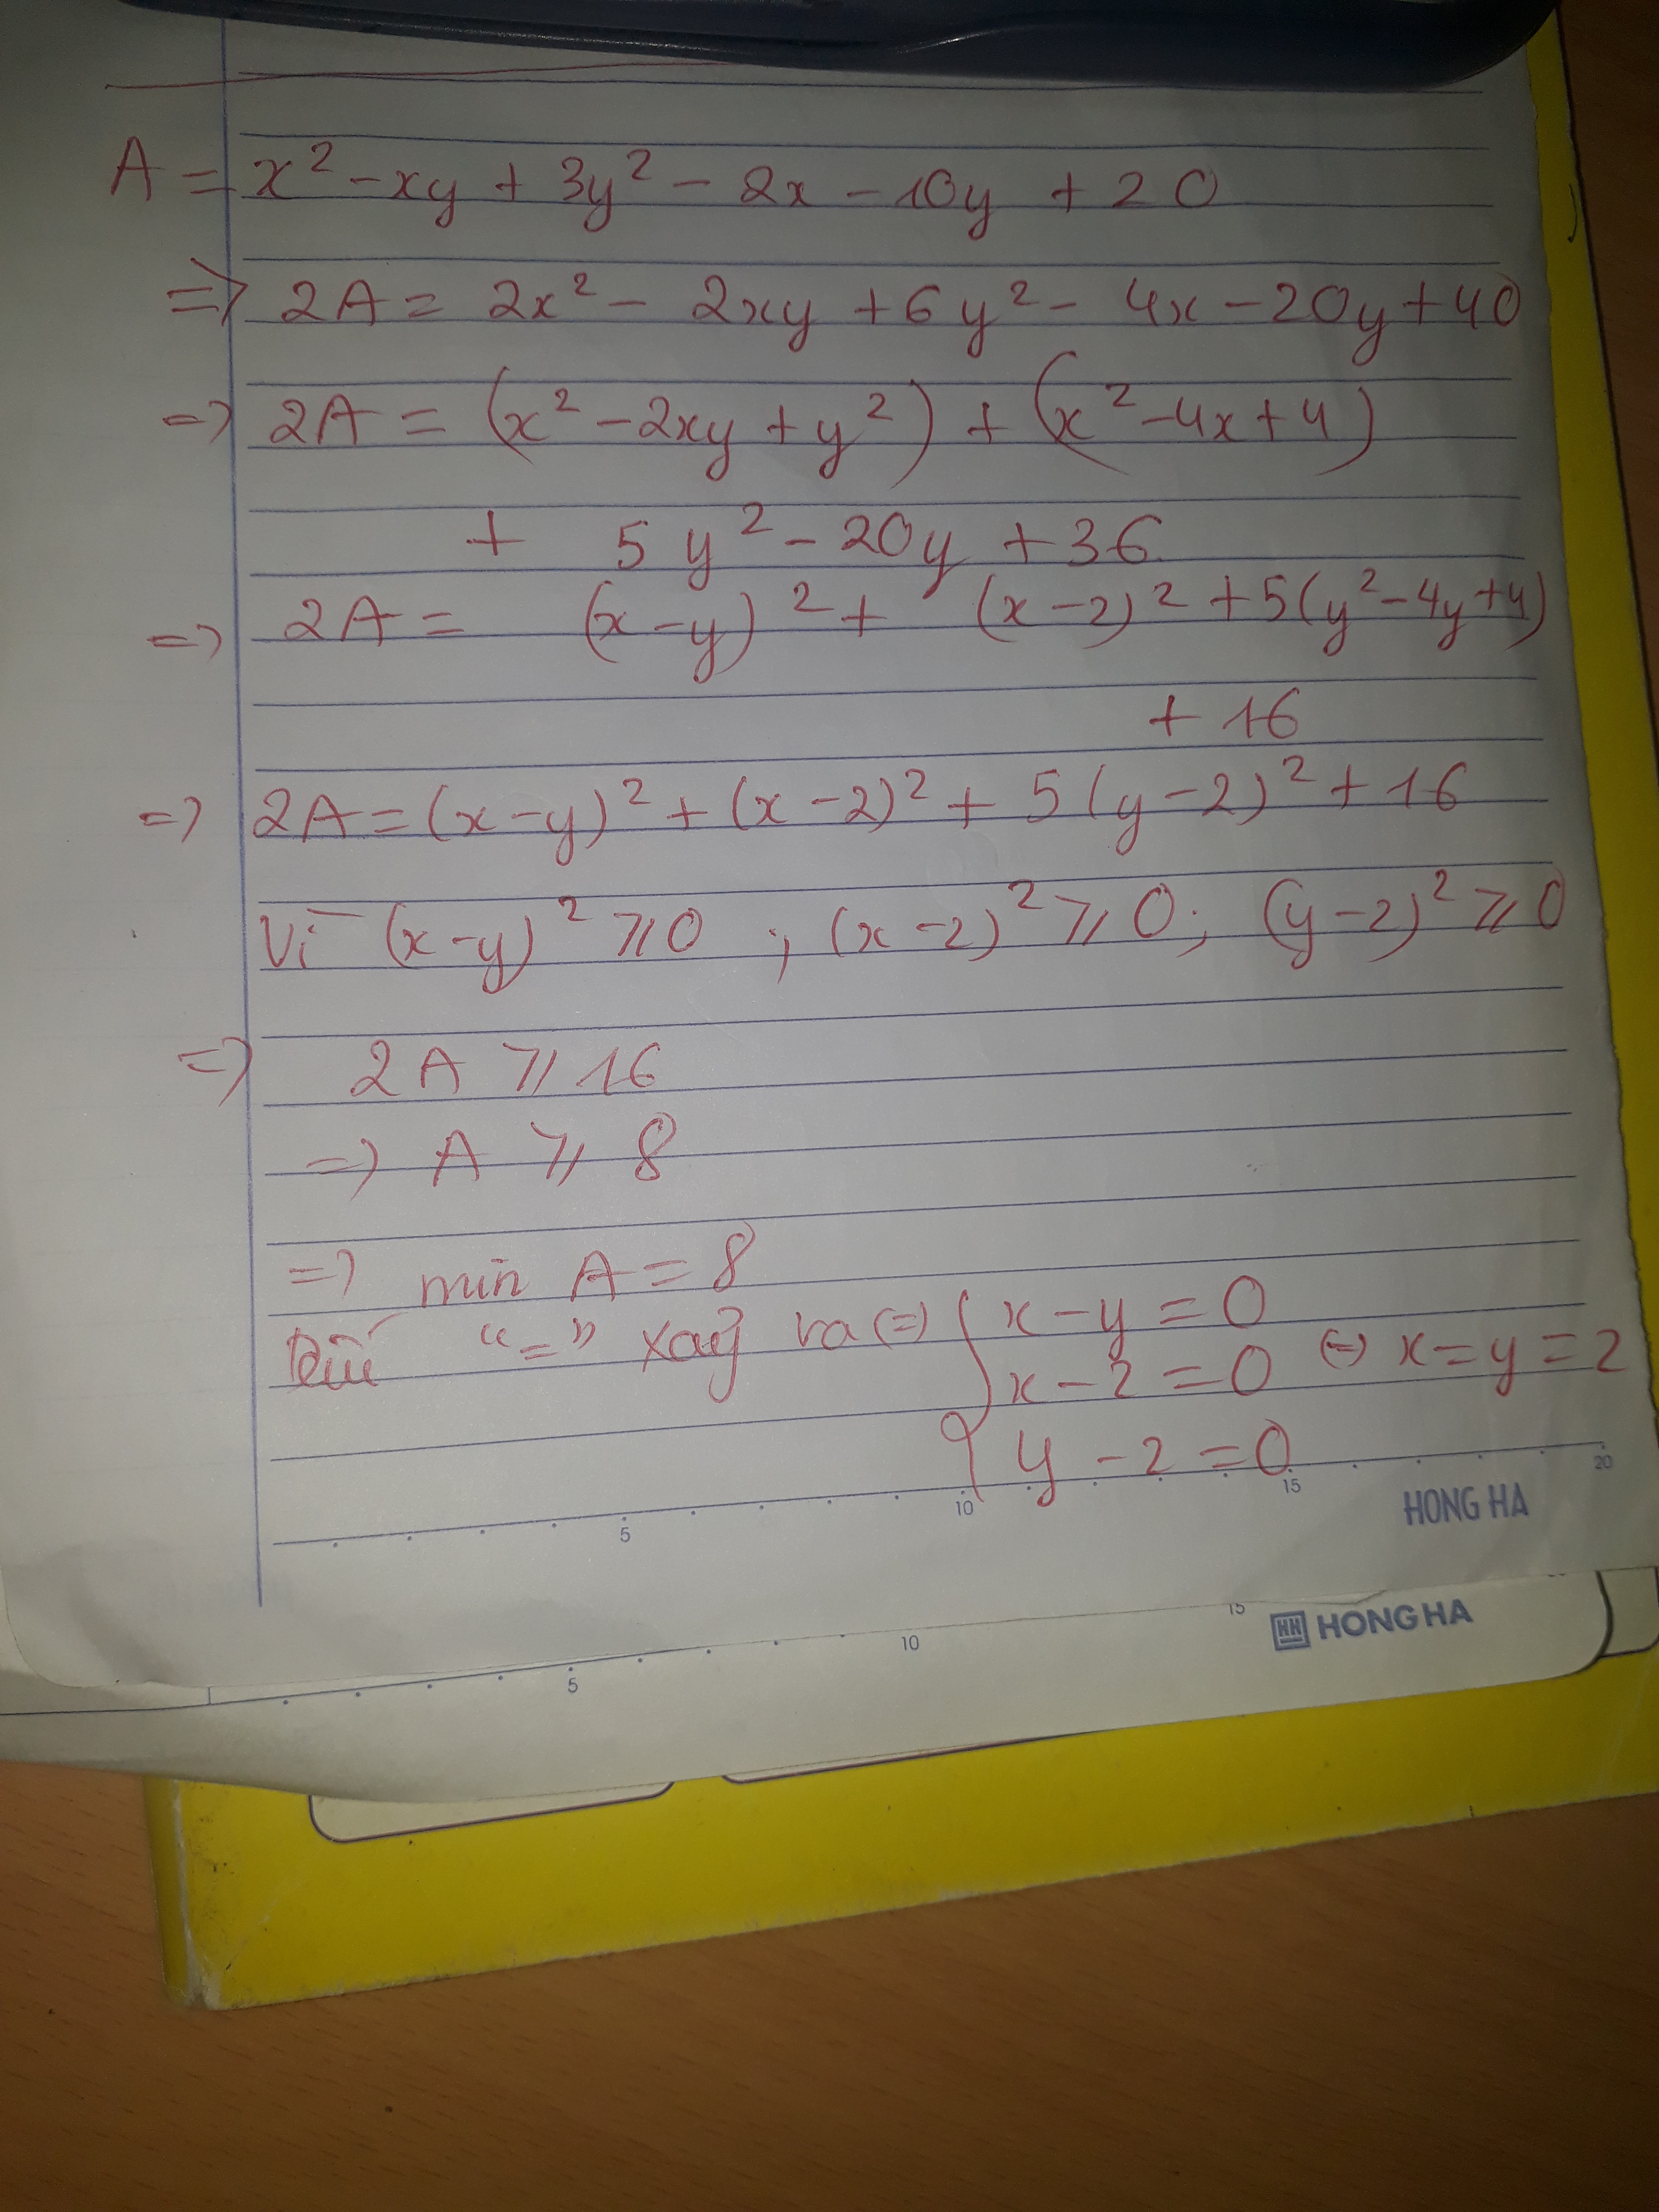 A = x² - xy + 3y² - 2x - 10y + 20
=> 2A = 2x² - 2xy + 6y² - 4x - 20y + 40
=> 2A = (x² - 2xy + y²) + (x² - 4x + 4)
+ 5y² - 20y + 36
=> 2A = (x - y)² + (x - 2)² + 5(y² - 4y + 4)
+ 16
=> 2A = (x - y)² + (x - 2)² + 5(y - 2)² + 16
Vì (x - y)² ⩾ 0 ; (x - 2)² ⩾ 0 ; (y - 2)² ⩾ 0
=> 2A ⩾ 16
=> A ⩾ 8
=> min A = 8
"=" xảy ra (=) { x - y = 0
x - 2 = 0 (=) x = y = 2
y - 2 = 0
5 10 15 20
HONG HA
5 10 15
HH HONG HA